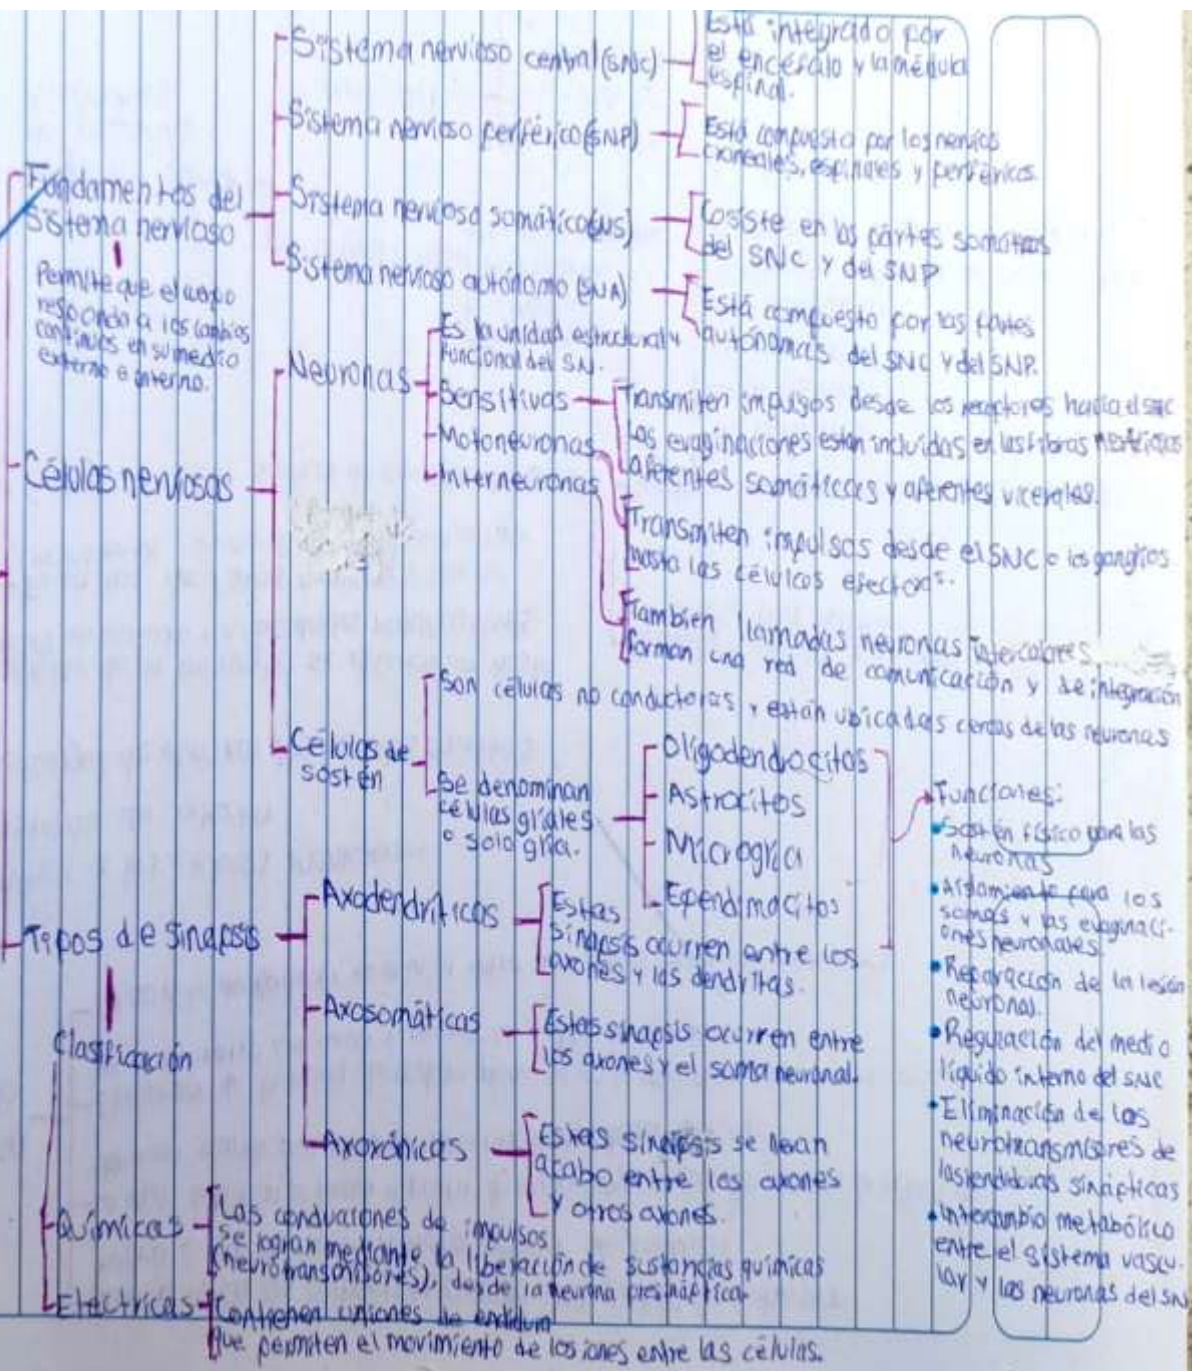 Está integrado por
el encéfalo y la médula
espinal.
Sistema nervioso central (SNC)
Sistema nervioso periférico (SNP)
Está compuesto por los nervios
craneales, espinales y periféricos.
Fundamentos del
Sistema nervioso
Permite que el cuerpo
responda a los cambios
continuos en su medio
externo e interno.
Sistema nervioso somático (SNS)
Cosiste en las partes somáticas
del SNC y del SNP
Sistema nervioso autónomo (SNA)
Está compuesto por las partes
autónomas del SNC y del SNP.
Células nerviosas
Neuronas
Es la unidad estructural y
funcional del SN.
Sensitivas
Transmiten impulsos desde los receptores hacia el SNC
Las evaginaciones están incluidas en las fibras nerviosas
aferentes somáticas y aferentes vicerales.
Motoneuronas
Transmiten impulsos desde el SNC o los ganglios
hasta las células
Interneuronas
Tambien llamadas neuronas intercalares
forman una red de comunicación y de integración
Células de
sostén
Son células no conductoras y están ubicadas cercas de las neuronas
Se denominan
células gliales
o solo glia.
Oligodendrocitos
Astrocitos
Microglia
Ependimocitos
Funciones:
Sostén físico para las
neuronas
Aislamiento para los
somas y las evaginaci-
ones neuronales.
Reparación de la lesión
neuronal.
Regulación del medio
líquido interno del SNC
Eliminación de los
neurotransmisores de
las hendiduras sinápticas
Intercambio metabólico
entre el sistema vascu-
lar y las neuronas del SN
Tipos de sinapsis
Axodendríticas
Estas
sinapsis ocurren entre los
axones y las dendritas.
Axosomáticas
Estas sinapsis ocurren entre
los axones y el soma neuronal.
Axoxónicas
Estas sinapsis se llevan
acabo entre los axones
y otros axones.
Clasificación
Químicas
Las conducciones de impulsos
se logran mediante la liberación de sustancias químicas
(neurotransmisores), desde la neurona presináptica.
Eléctricas
Contienen uniones de
que permiten el movimiento de los iones entre las células.